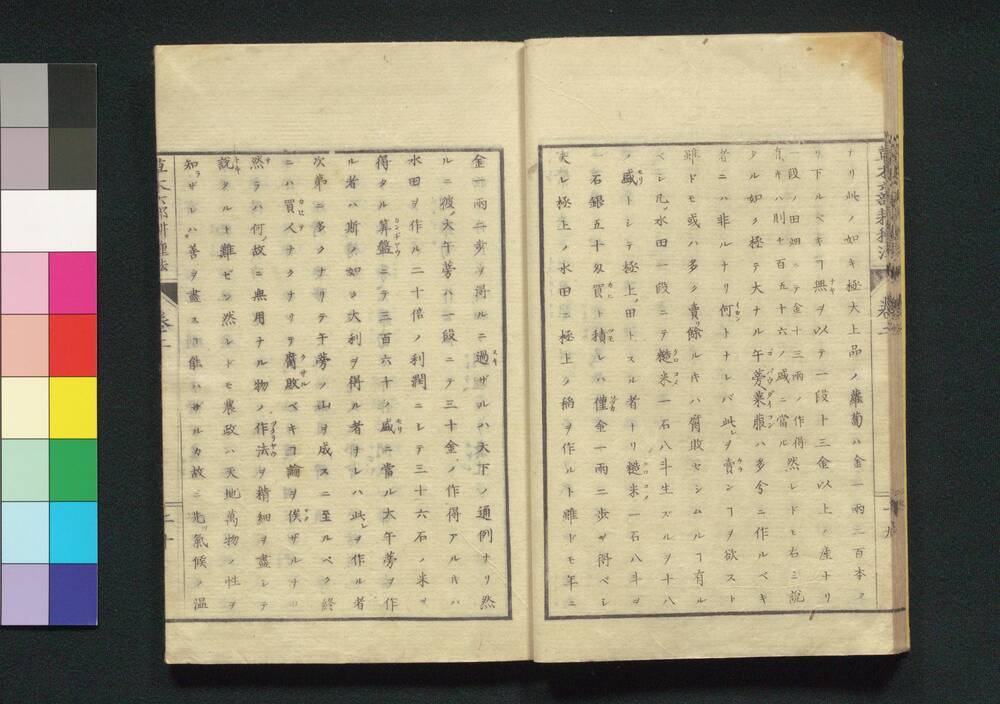 草木六部耕種法 卷二 十九
ナリ此ノ如キ極大上品ノ蘿蔔ハ金一兩ニ百本ヨ
リ下ルベキヿ無ヲ以テ一段ト十三金以上ノ產ナリ
一段ノ田畑ニテ金十三兩ノ作得然レドモ右ニ說
有キハ則十百五十六ノ盛ニ當ル
タル如ク極テ大ナル午蒡萊菔ハ多分ニ作ルベキ
者ニハ非ルナリ何トナレバ此レヲ賣ンヿヲ欲スト
雖ドモ或ハ多ク賣餘ルキハ腐敗セシムルヿ有ル
ベシ凡ソ水田一段ニテ糙米一石八斗生ズルヲ十八
ノ盛トシテ極上ノ田トスル者ナリ糙米一石八斗ヲ
一石銀五十匁買ト積レハ僅金一兩二步ヲ得ベシ
夫レ極上ノ水田ニ極上ノ稻ヲ作ルト雖ドモ年ニ
金一兩二步ヲ得ルニ過ザルハ天下ノ通例ナリ然
ルニ彼ノ大午蒡ハ一段ニテ三十金ノ作得アルキハ
水田ヲ作ル二十倍ノ利潤ニシテ三十六石ノ米ヲ
得タル算盤ニテ三百六十ノ盛ニ當ル大午蒡ヲ作
ル者ハ斯ノ如ク大利ヲ得ル者ヲレハ此レヲ作ル者
次第ニ多クナリテ午蒡ノ山ヲ成スニ至ルベク終
ニハ買人ナクナリテ腐敗ベキコ論ヲ俟ザルナリ
然ラハ何ノ故ニ無用ナル物ノ作法ヲ精細ヲ盡シテ
說タルト難ゼン然レドモ農政ハ天地萬物ノ性ヲ
知ラザレハ善ヲ盡スヿ能ハザルカ故ニ先ツ氣候ノ溫
草木六部耕種法 卷二 二十